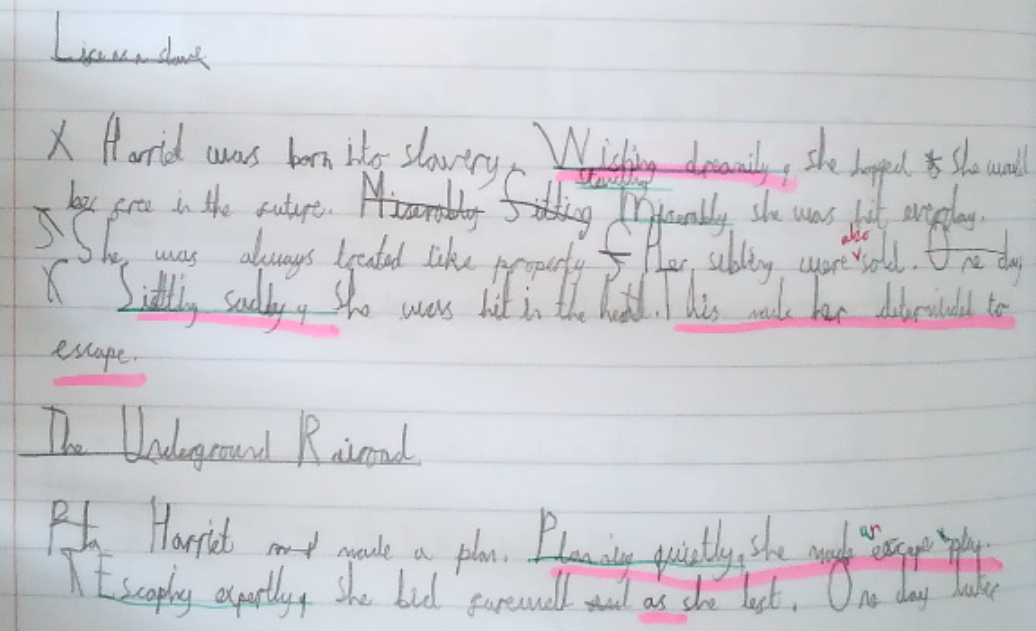 Life as a slave
X Harriet was born into slavery. Wishing dreamily, she hopped she would
be free in the future. Miserably Sitting Miserably she was hit everyday.
She was always treated like property Her sebling were also sold. One day
Sidtly saddy, She was hit in the head. This made her determinded to
escape.
The Underground Rairoad
Harriet made a plan. Planning quietly, she made an escape plan.
Escaphy expertly, She bid farewell as she left. One day later